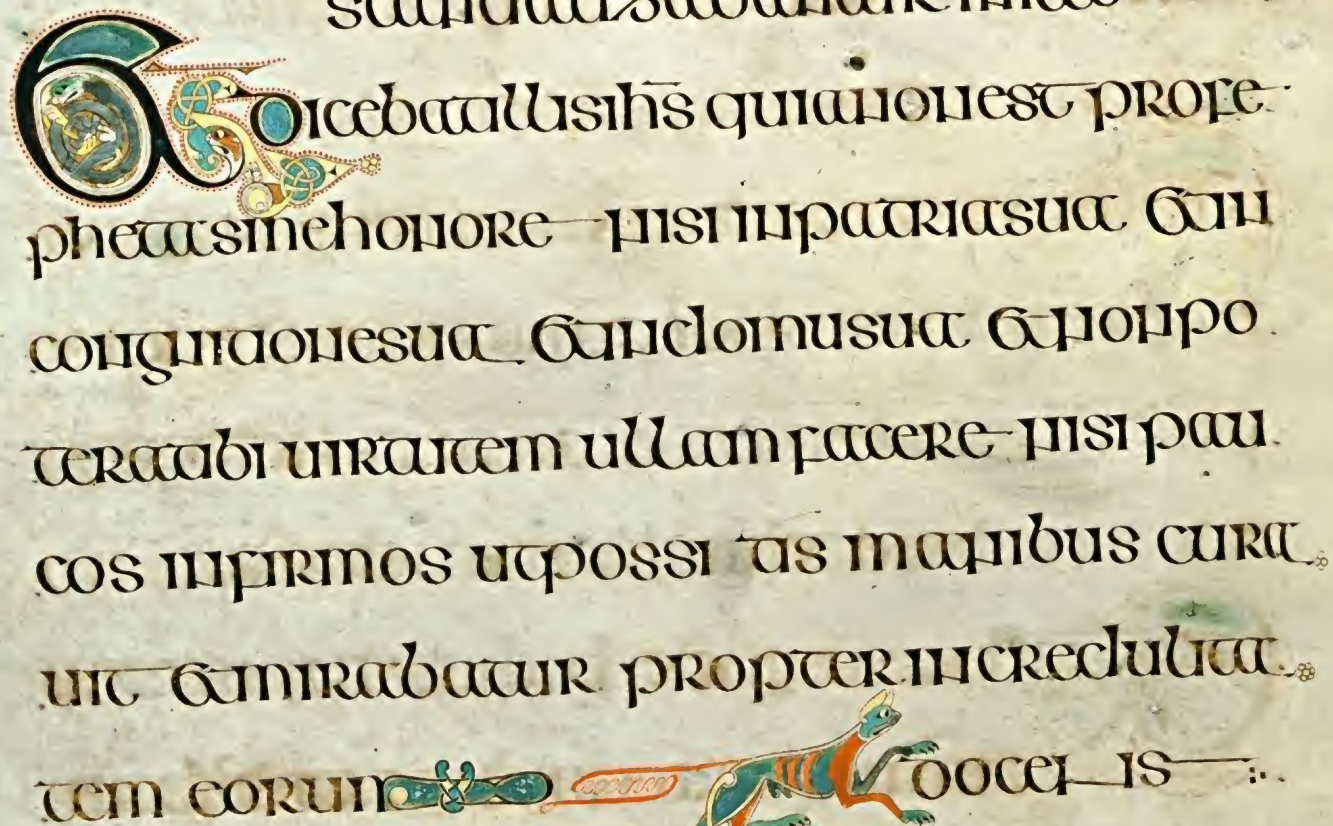 Et dicebat illis ihs quia non est profe
pheta sine honore nisi in patria sua et in
congnitione sua et in domu sua et non po
terat ibi uirtutem ullam facere nisi pau
cos infirmos ut possi tis manibus cura
uit et mirabatur propter incredulita
tem eorum docens